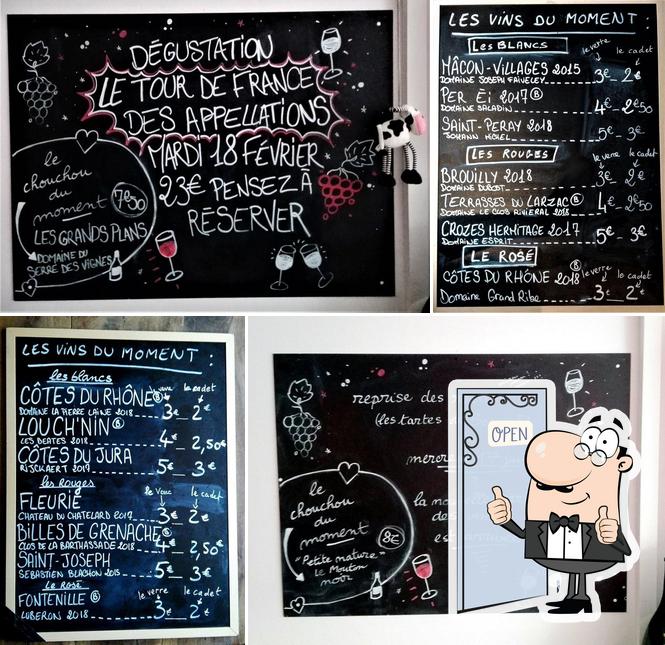 DÉGUSTATION
LE TOUR DE FRANCE
DES APPELLATIONS
MARDI 18 FÉVRIER
23€ PENSEZ À
RÉSERVER
le
chouchou
du
moment
7€50
LES GRANDS PLANS
DOMAINE DU
SERRE DES VIGNES
LES VINS DU MOMENT
Les BLANCS le verre le cadet
MÂCON-VILLAGES 2015
DOMAINE JOSEPH FAIVELEY 3€ 2€
PER Èi 2017 B
DOMAINE SALADIN 4€ 2€50
SAINT-PERAY 2018
JOHANN MICHEL 5€ 3€
LES ROUGES le verre le cadet
BROUILLY 2018
DOMAINE DUBOST 3€ 2€
TERRASSES DU LARZAC B
DOMAINE LE CLOS RIVIERAL 2018 4€ 2€50
CROZES HERMITAGE 2017
DOMAINE ESPRIT 5€ 3€
LE ROSÉ
CÔTES DU RHÔNE 2018 B le verre le cadet
Domaine Grand Ribe 3€ 2€
LES VINS DU MOMENT
les blancs
CÔTES DU RHÔNE B le verre le cadet
DOMAINE LA PIERRE LAINE 2018 3€ 2€
LOU CH'NIN B
LES BEATES 2018 4€ 2,50€
CÔTES DU JURA
RIJCKAERT 2017 5€ 3€
les Rouges
FLEURIE le verre le cadet
CHATEAU DU CHATELARD 2017 3€ 2€
BILLES DE GRENACHE B
CLOS DE LA BARTHASSADE 2018 4€ 2,50€
SAINT-JOSEPH
SEBASTIEN BLACHON 2015 5€ 3€
Le Rosé
FONTENILLE B le verre le cadet
LUBERON 2018 3€ 2€
reprise des
(les tartes
la
est
le
chouchou
du
moment
8€
"Petite nature"
Le Mouton
noir
OPEN